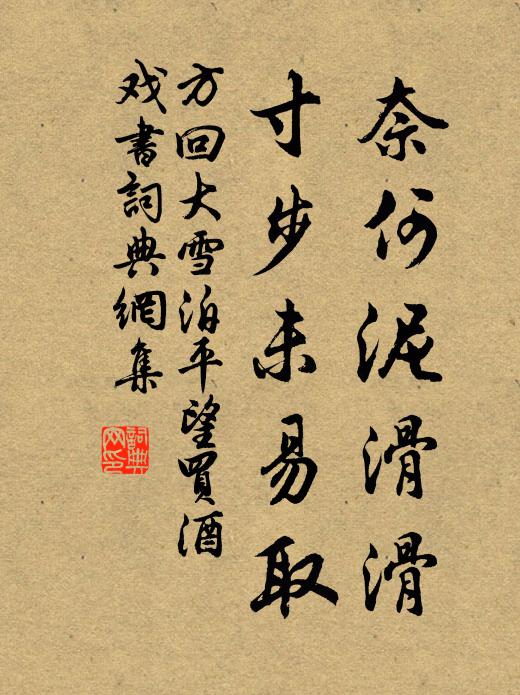 奈何泥滑滑
寸步未易取
方回大雪泊平望買酒
戏書詞典網集
詞典網印